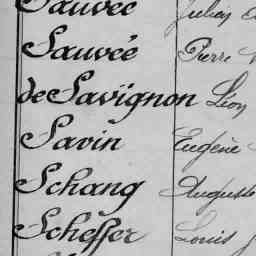 Sauvée Julien
Sauvée Pierre
de Savignon Léon
Savin Eugène
Schang Auguste
Scheffer Louis